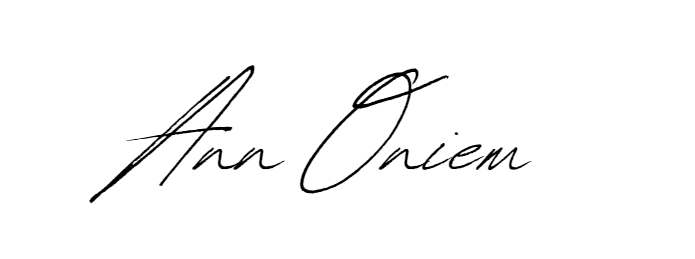 Ann Oniem